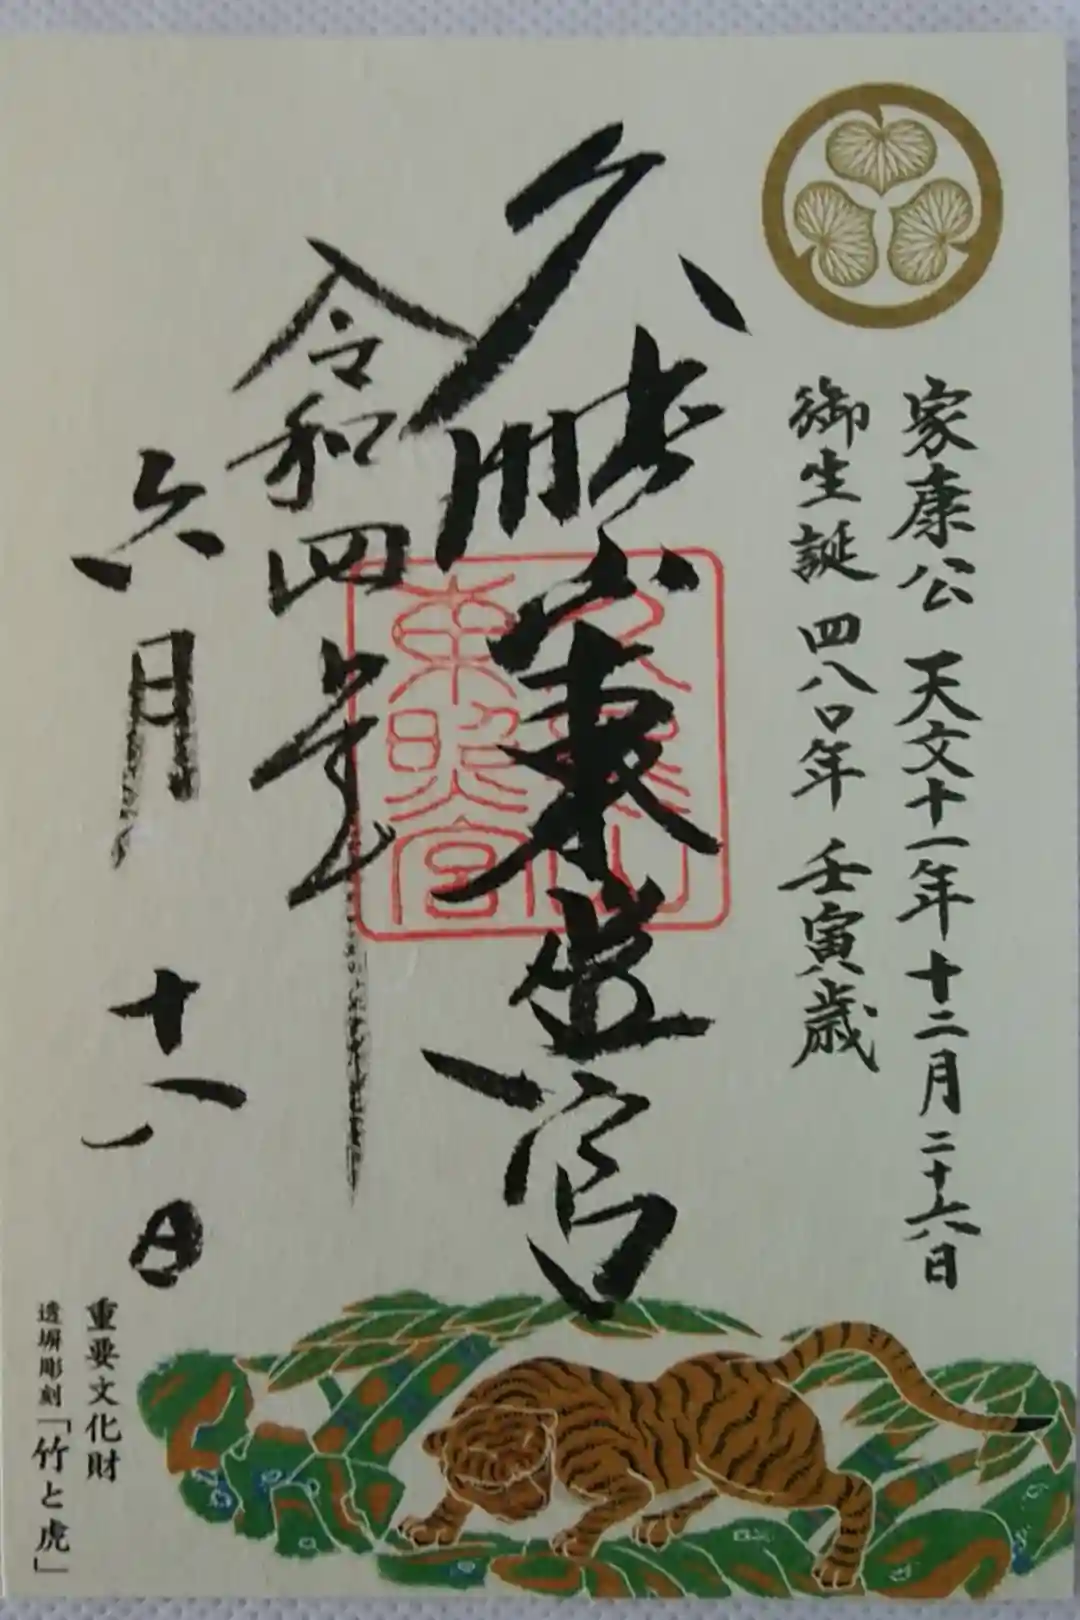 家康公 天文十一年 十二月 二十六日
御生誕 四八〇年 壬寅歳
久能山東照宮
久能山
東照宮
令和四年
六月十八日
重要文化財
透塀彫刻「竹と虎」